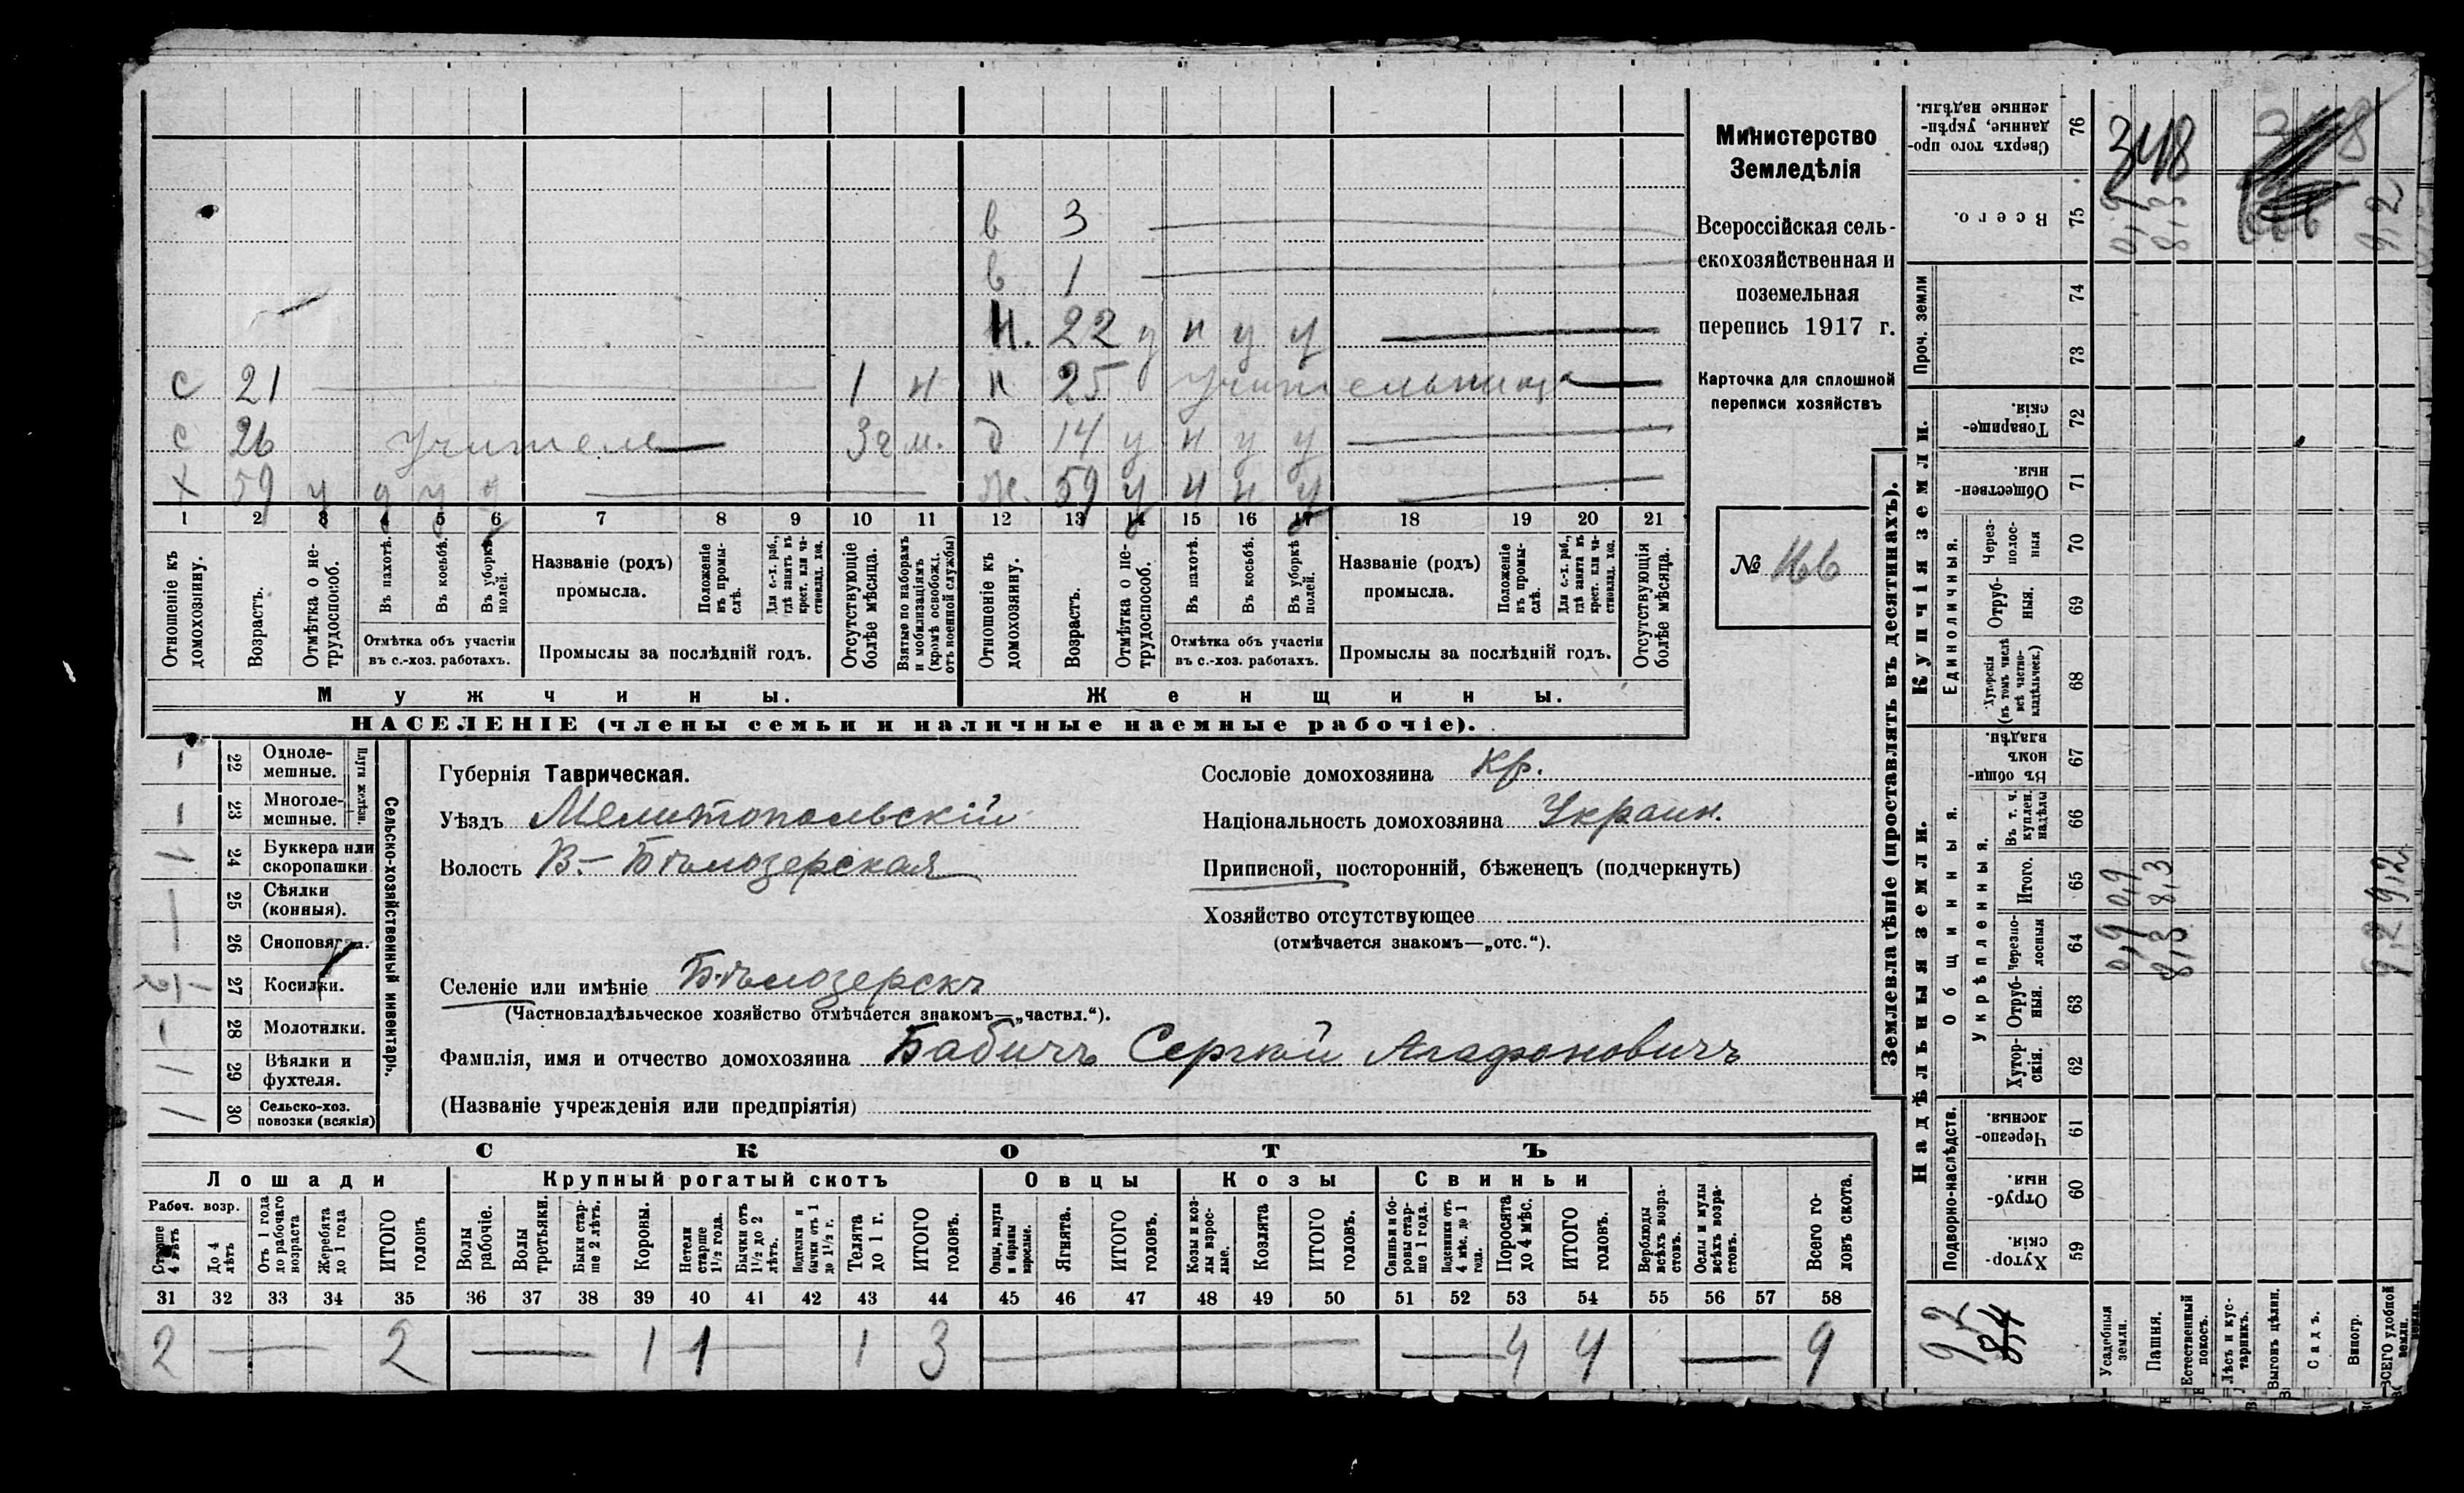 в 3
в 1
н. 22 у н у у
с 21 1 н н 25 учительница
с 26 учитель 3 г м. д 14 у н у у
х 59 у у у у ж. 59 у н н у
1 2 3 4 5 6 7 8 9 10 11 12 13 14 15 16 17 18 19 20 21
Отношеніе къ домохозяину.
Возрастъ.
Отмѣтка о не-трудоспособ.
Въ пахотѣ.
Въ косьбѣ.
Въ уборкѣ полей.
Отмѣтка объ участіи въ с.-хоз. работахъ.
Названіе (родъ) промысла.
Положеніе въ промы-слѣ.
Для с.-х. раб., гдѣ занятъ въ крест. или ча-стновлад. хоз.
Промыслы за послѣдній годъ.
Отсутствующіе болѣе мѣсяца.
Взятые по наборамъ и мобилизаціямъ (кромѣ освобожд. отъ военной службы)
Отношеніе къ домохозяину.
Возрастъ.
Отмѣтка о не-трудоспособ.
Въ пахотѣ.
Въ косьбѣ.
Въ уборкѣ полей.
Отмѣтка объ участіи въ с.-хоз. работахъ.
Названіе (родъ) промысла.
Положеніе въ промы-слѣ.
Для с.-х. раб., гдѣ занята въ крест. или ча-стновлад. хоз.
Промыслы за послѣдній годъ.
Отсутствующія болѣе мѣсяца.
Мужчины. Женщины.
НАСЕЛЕНІЕ (члены семьи и наличные наемные рабочіе).
Министерство
Земледѣлія
Всероссійская сель-
скохозяйственная и
поземельная
перепись 1917 г.
Карточка для сплошной
переписи хозяйствъ
№ 166
Сельско-хозяйственный инвентарь.
Плуги желѣзн.
22 Одноле-мешные.
23 Многоле-мешные.
1 24 Буккера или скоропашки
25 Сѣялки (конныя).
26 Сноповяз.
1/2 27 Косилки.
28 Молотилки.
1 29 Вѣялки и фухтеля.
1 30 Сельско-хоз. повозки (всякія)
Губернія Таврическая.
Уѣздъ Мелитопольскій
Волость В.- Бѣлозерская
Сословіе домохозяина кр.
Національность домохозяина Украин.
Приписной, посторонній, бѣженецъ (подчеркнуть)
Хозяйство отсутствующее
(отмѣчается знакомъ—„отс.“).
Селеніе или имѣніе Бѣлозерскъ
(Частновладѣльческое хозяйство отмѣчается знакомъ—„частвл.“).
Фамилія, имя и отчество домохозяина Бабичъ Сергѣй Агафоновичъ
(Названіе учрежденія или предпріятія)
СКОТЪ
Лошади Крупный рогатый скотъ Овцы Козы Свиньи
Рабоч. возр.
Старше 4 лѣтъ
До 4 лѣтъ
Отъ 1 года до рабочаго возраста
Жеребята до 1 года
ИТОГО головъ
Волы рабочіе.
Волы третьяки.
Быки стар-ше 2 лѣтъ.
Коровы.
Нетели старше 1½ года.
Бычки отъ 1½ до 2 лѣтъ.
Подтелки и бычки отъ 1 до 1½ г.
Телята до 1 г.
ИТОГО головъ.
Овцы, валухи и бараны взрослые.
Ягнята.
ИТОГО головъ.
Козы и коз-лы взрос-лые.
Козлята
ИТОГО головъ.
Свиньи и бо-ровы стар-ше 1 года.
Подсвинки отъ 4 мѣс. до 1 года.
Поросята до 4 мѣс.
ИТОГО головъ.
Верблюды всѣхъ возра-стовъ.
Ослы и мулы всѣхъ возра-стовъ.
Всего го-ловъ скота.
31 32 33 34 35 36 37 38 39 40 41 42 43 44 45 46 47 48 49 50 51 52 53 54 55 56 57 58
2 2 1 1 1 3 4 4 9
Землевладѣніе (проставлять въ десятинахъ).
Надѣльныя земли.
Купчія земли.
Проч. земли
Подворно-наслѣдств.
Общинныя.
Укрѣпленныя.
Единоличныя.
Сверхъ того про-данные, укрѣп-ленные надѣлы. 76 348
Всего. 75 0,9 8,3 9,2
74
73
Товарище-скія. 72
Обществен-ныя. 71
Через-полос-ныя 70
Отруб-ныя. 69
Хуторскія (въ томъ числѣ всѣ частно-владѣльческ.) 68
Въ общи-номъ владѣн. 67
Въ т. ч. куплен. надѣлы 66
Итого. 65 0,9 8,3 9,2
Черезпо-лосныя 64 0,9 8,3 9,2
Отруб-ныя. 63
Хутор-скія. 62
Черезпо-лосныя. 61
Отруб-ныя. 60
Хутор-скія. 59
9,2
8,4
Усадебныя земли.
Пашня.
Естественный покосъ.
Лѣсъ и кус-тарникъ.
Выгонъ цѣлин.
Садъ.
Виногр.
ВСЕГО удобной земли.